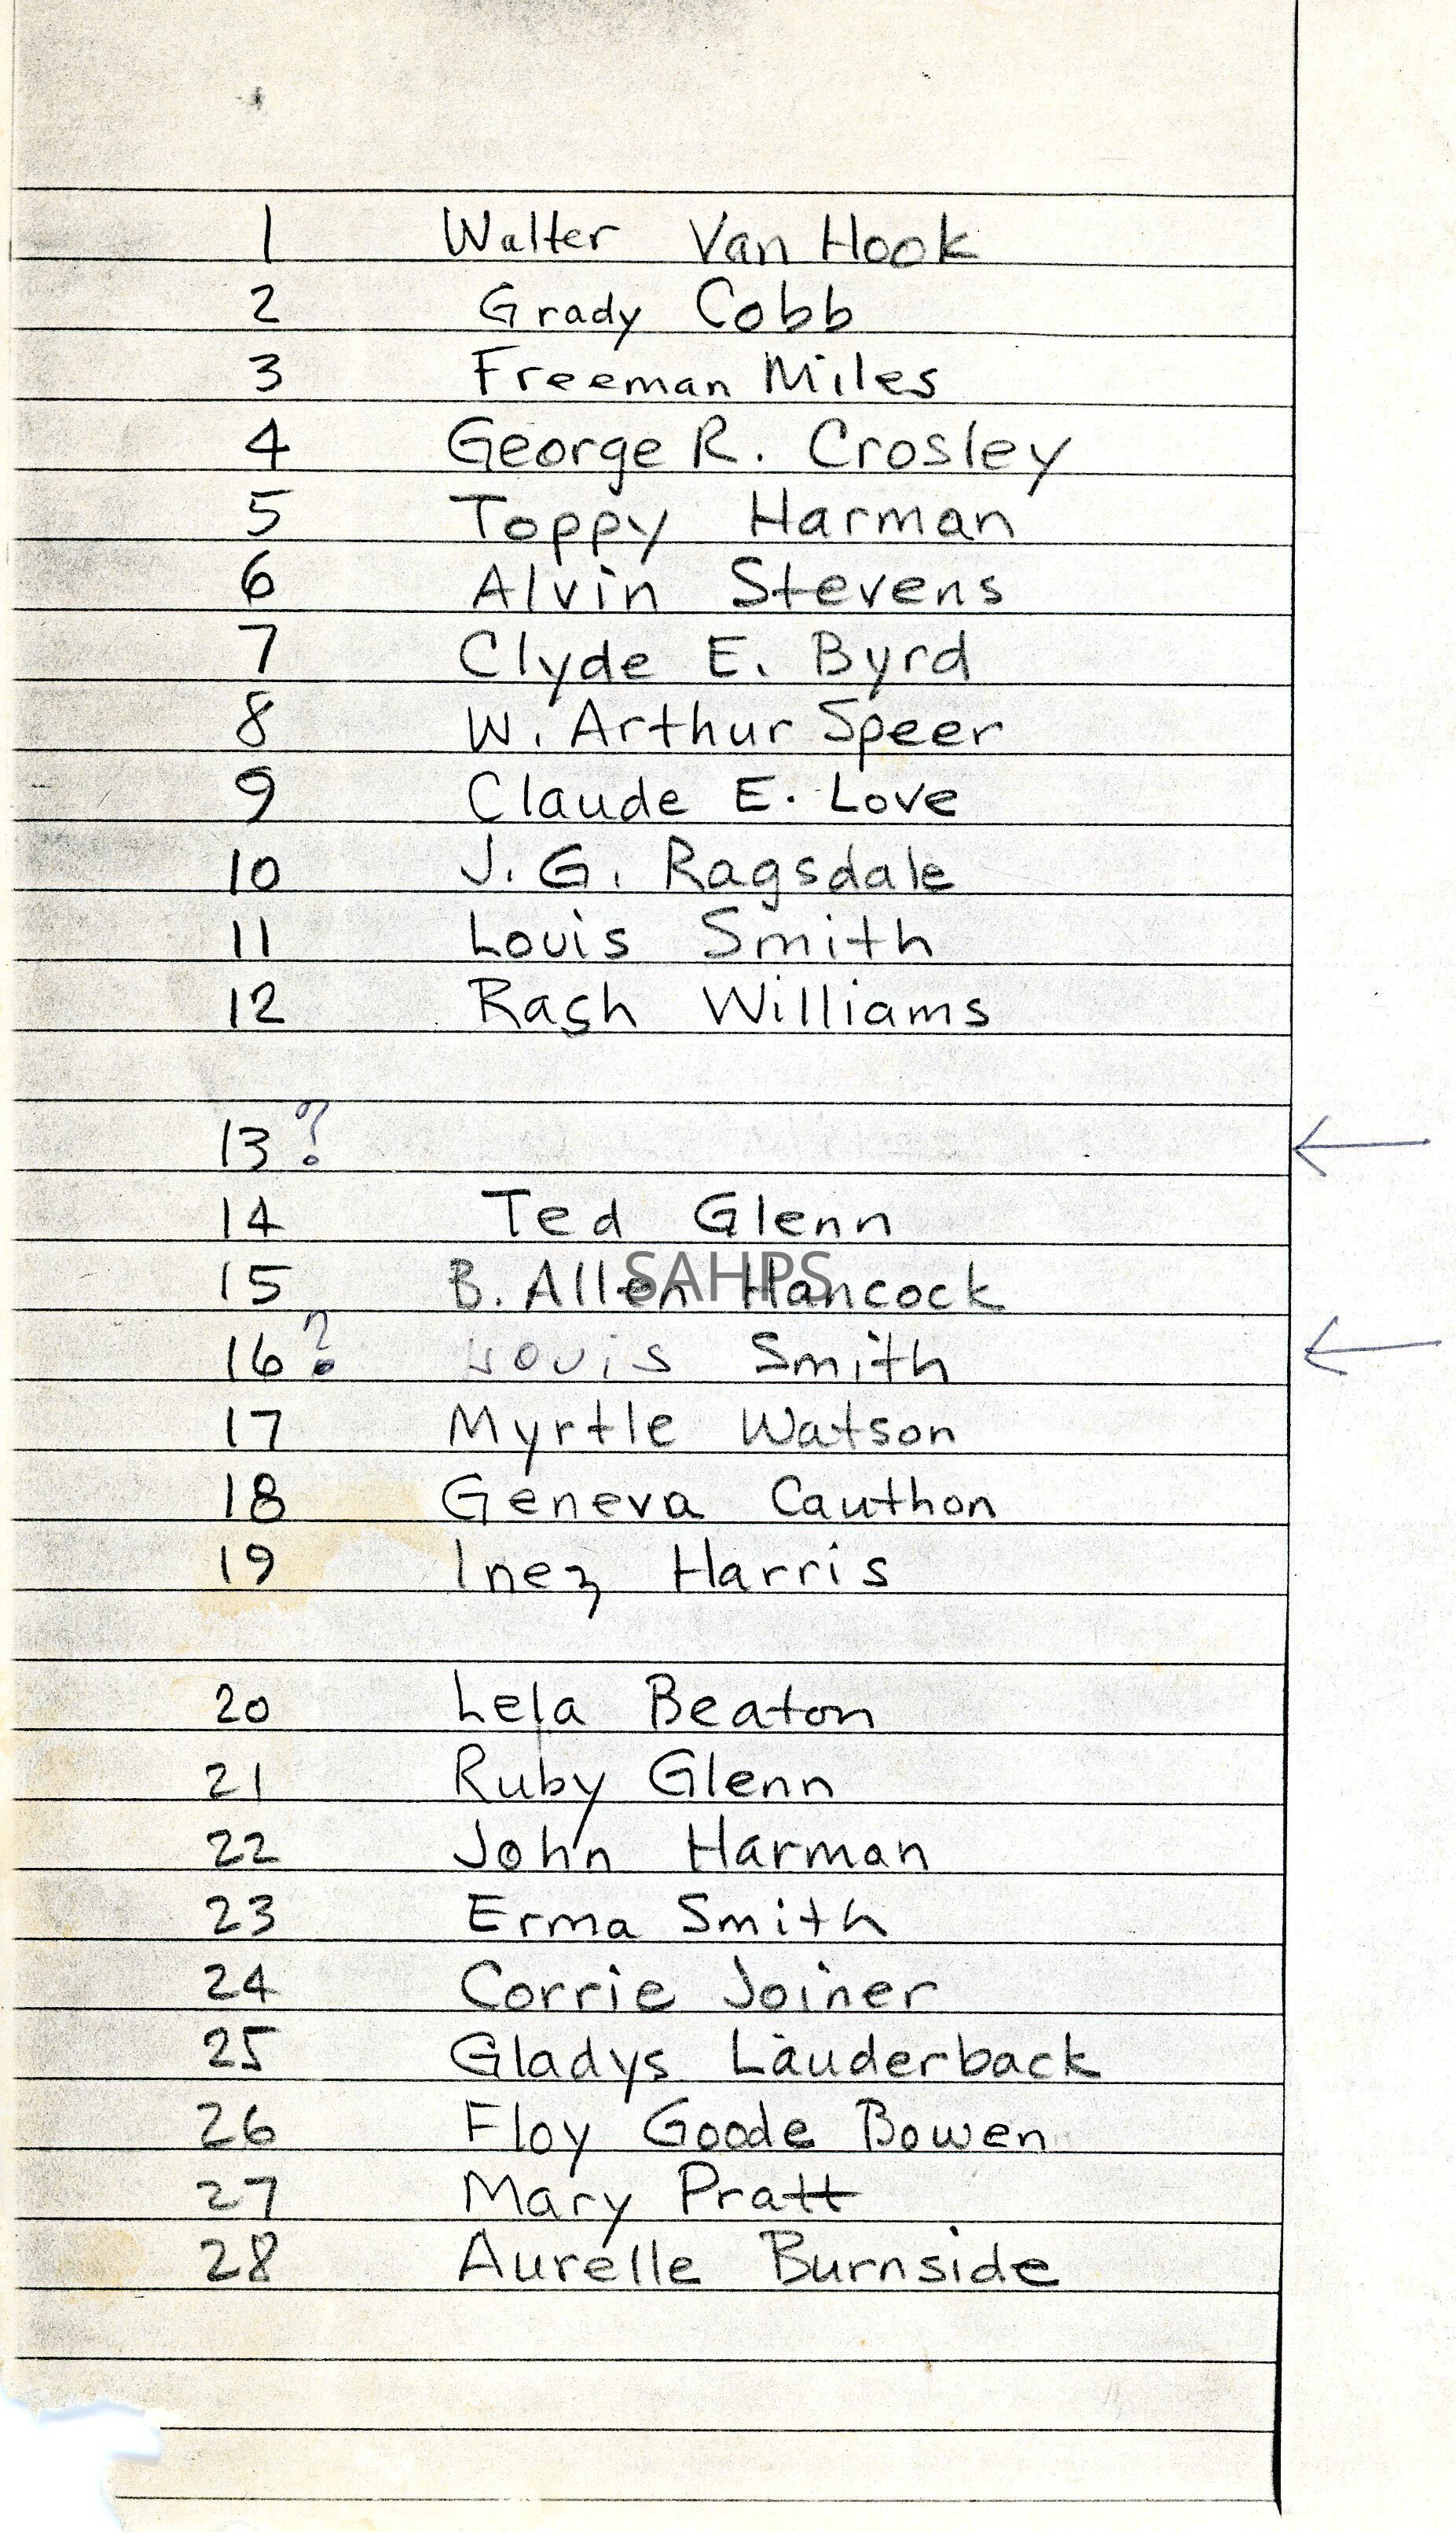 1 Walter Van Hook
2 Grady Cobb
3 Freeman Miles
4 George R. Crosley
5 Toppy Harman
6 Alvin Stevens
7 Clyde E. Byrd
8 W. Arthur Speer
9 Claude E. Love
10 J. G. Ragsdale
11 Louis Smith
12 Rash Williams
13 ?
14 Ted Glenn
15 B. Allen Hancock
SAHPS
16 ? Louis Smith
17 Myrtle Watson
18 Geneva Cauthon
19 Inez Harris
20 Lela Beaton
21 Ruby Glenn
22 John Harman
23 Erma Smith
24 Corrie Joiner
25 Gladys Lauderback
26 Floy Goode Bowen
27 Mary Pratt
28 Aurelle Burnside